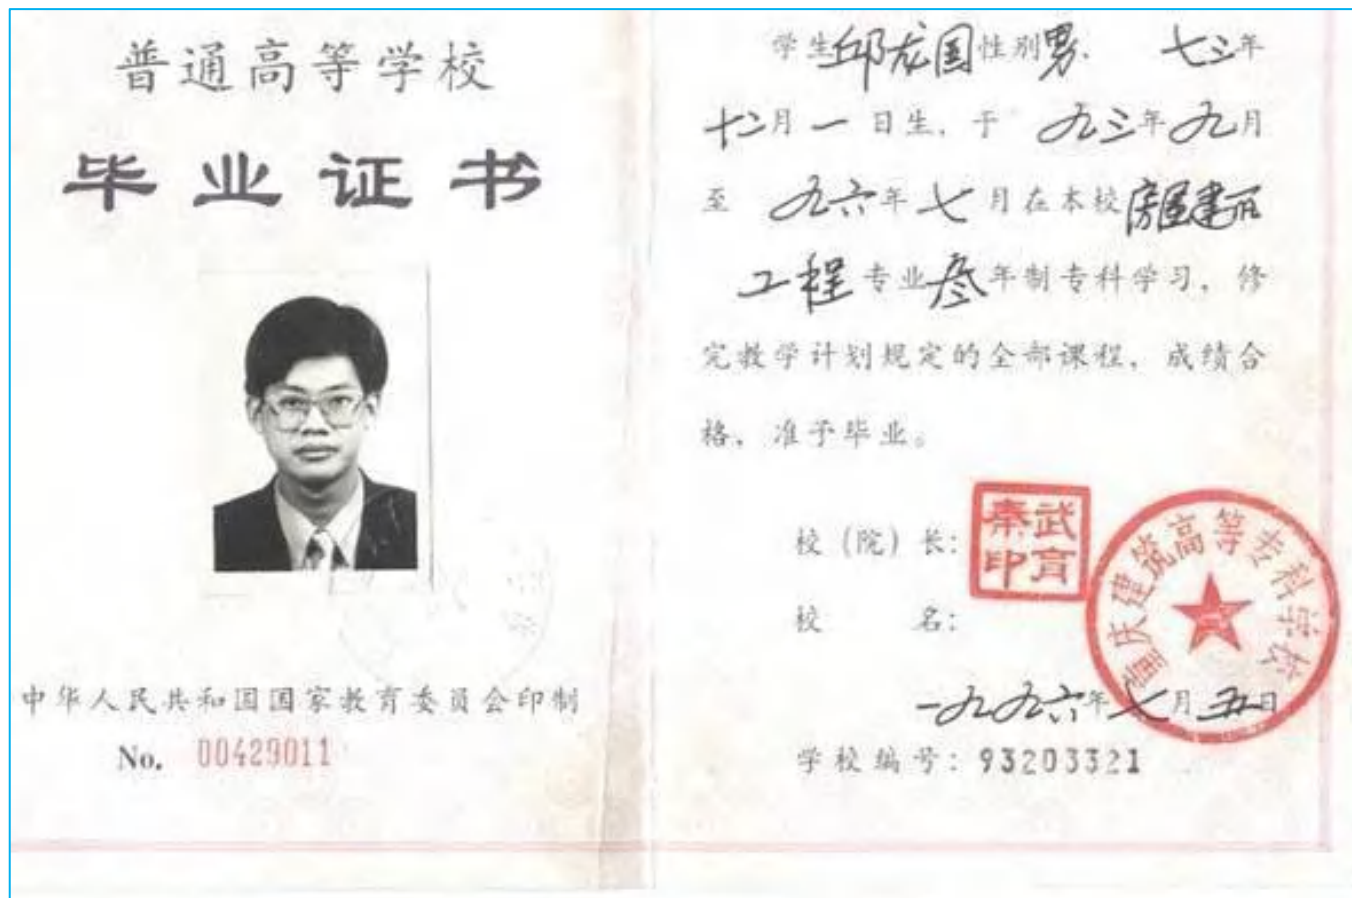 普通高等学校
毕业证书
中华人民共和国国家教育委员会印制
No. 00429011
学生邱龙国性别男、七三年
十二月一日生，于 九三年九月
至 九六年七月在本校房屋建筑
工程专业叁年制专科学习，修
完教学计划规定的全部课程，成绩合
格，准予毕业。
校（院）长：
秦武
印育
校 名：
重庆建筑高等专科学校
一九九六年七月五日
学校编号：93203321